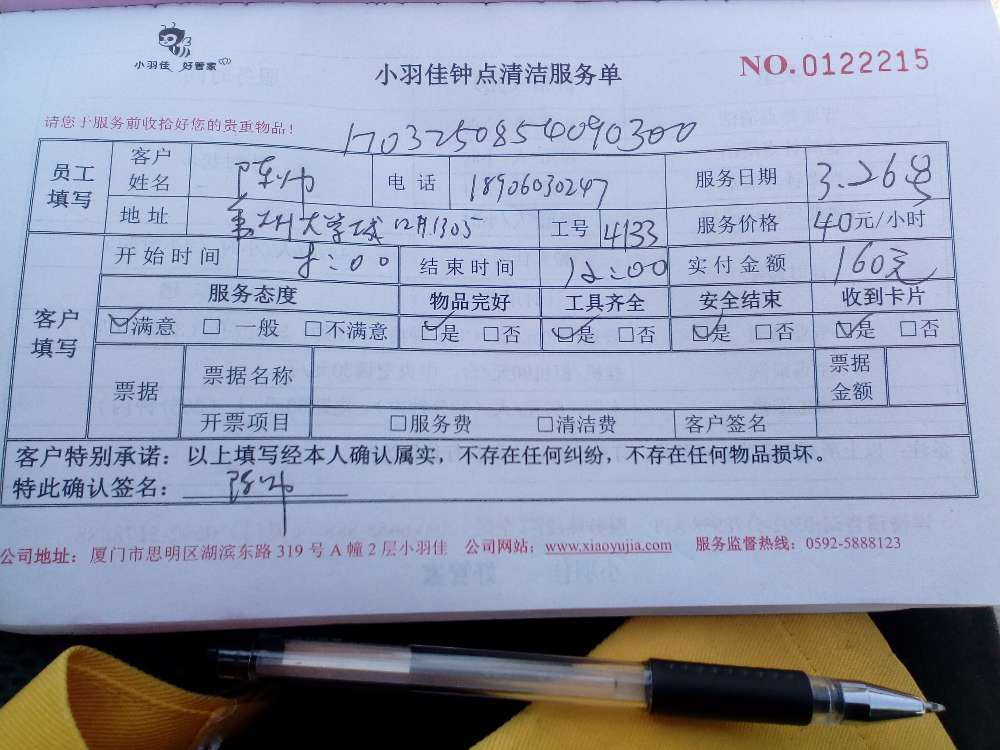 小羽佳 好管家
小羽佳钟点清洁服务单
NO.0122215
请您于服务前收拾好您的贵重物品!
170325085409030​0
员工填写 客户姓名 陈 电话 18906030247 服务日期 3.26号
地址 大学城 1305 工号 4133 服务价格 40元/小时
客户填写 开始时间 8:00 结束时间 12:00 实付金额 160元
服务态度 物品完好 工具齐全 安全结束 收到卡片
☑满意 □ 一般 □不满意 ☑是 □否 ☑是 □否 ☑是 □否 ☑是 □否
票据 票据名称 票据金额
开票项目 □服务费 □清洁费 客户签名
客户特别承诺：以上填写经本人确认属实，不存在任何纠纷，不存在任何物品损坏。
特此确认签名：
公司地址：厦门市思明区湖滨东路 319 号 A 幢 2 层小羽佳 公司网站：www.xiaoyujia.com 服务监督热线：0592-5888123